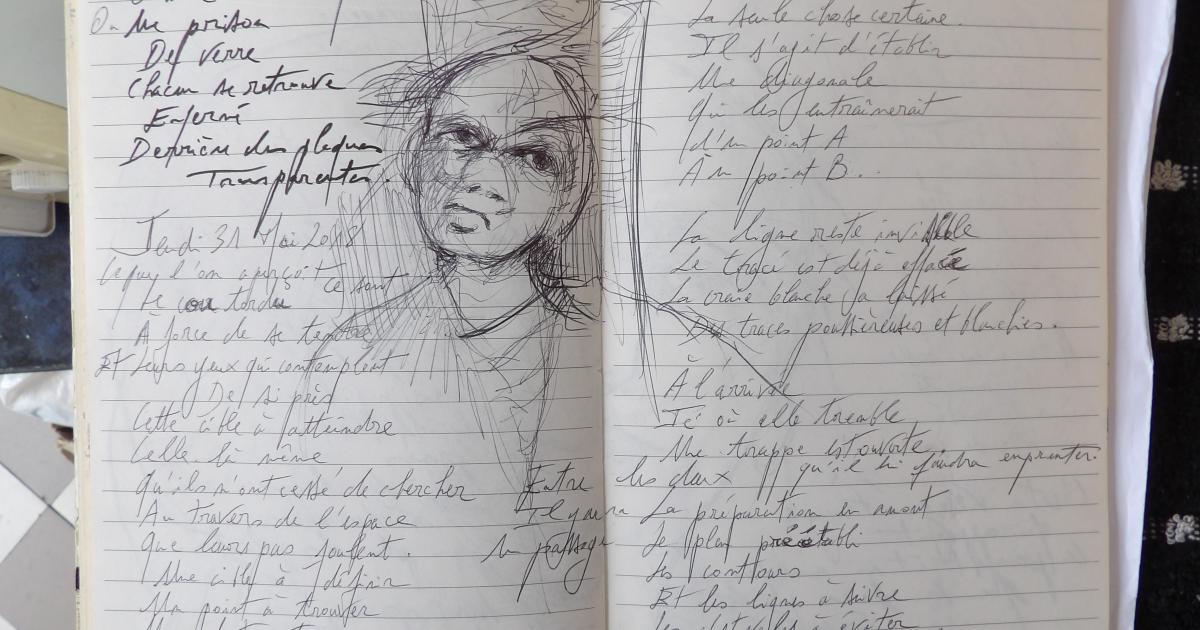 Une prison
De verre
Chacun se retrouve
Enfermé
Derrière des plaques
Transparentes.
Jeudi 31 Mai 2018
Ce que l'on aperçoit ce sont
Le cou tordu
A force de se tendre
Et leurs yeux qui contemplent
De si près
Cette cible à atteindre
Celle-là même
Qu'ils n'ont cesse de chercher
Au travers de l'espace
Que leurs pas foulent.
Une cible à définir
Un point à trouver
Entre les deux
Il y aura
un passage
La seule chose certaine.
Il s'agit d'établir
Une diagonale
Qui les entraînerait
d'un point A
À un point B..
La ligne reste invisible
Le tracé est déjà effacé
La craie blanche a laissé
Des traces poussiéreuses et blanchies.
À l'arrivée
Là où elle tremble
Une trappe est ouverte
qu'il lui faudra emprunter.
La préparation en amont
Le plan préétabli
Les contours
Et les lignes à suivre
à éviter